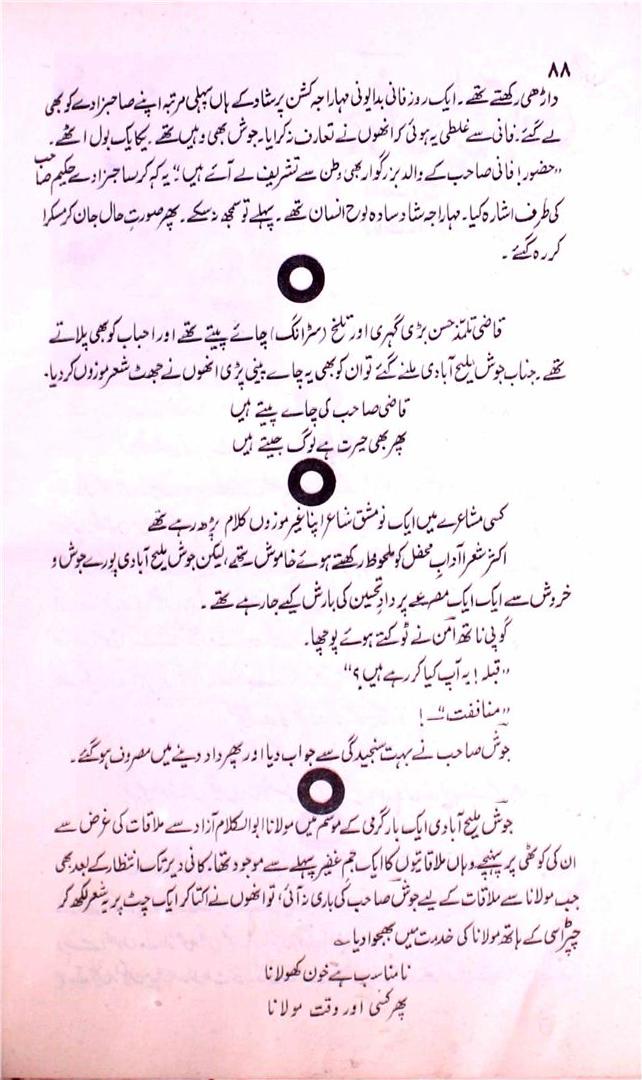 ۸۸
داڑھی رکھتے تھے۔ ایک روز فانی بدایونی مہاراجہ کشن پرشاد کے ہاں پہلی مرتبہ اپنے صاحبزادے کو بھی
لے گئے۔ فانی سے غلطی یہ ہوئی کہ انھوں نے تعارف نہ کرایا۔ جوش بھی وہیں تھے۔ یکایک بول اٹھے۔
”حضور! فانی صاحب کے والد بزرگوار بھی وطن سے تشریف لے آئے ہیں“۔ یہ کہہ کر صاحبزادے حکیم صاحب
کی طرف اشارہ کیا۔ مہاراجہ شاد سادہ لوح انسان تھے۔ پہلے تو سمجھ نہ سکے۔ پھر صورتِ حال جان کر مسکرا
کر رہ گئے۔
قاضی تلمّذ حسن بڑی گہری اور تلخ (سڑانک) چائے پیتے تھے اور احباب کو بھی پلاتے
تھے۔ جناب جوش ملیح آبادی ملنے گئے تو ان کو بھی یہ چائے پینی پڑی انھوں نے جھٹ شعر موزوں کر دیا۔
قاضی صاحب کی چائے پیتے ہیں
پھر بھی حیرت ہے لوگ جیتے ہیں
کسی مشاعرے میں ایک نو مشق شاعر اپنا غیر موزوں کلام پڑھ رہے تھے
اکثر شعرا آدابِ محفل کو ملحوظ رکھتے ہوئے خاموش تھے، لیکن جوش ملیح آبادی پورے جوش و
خروش سے ایک ایک مصرعے پر دادِ تحسین کی بارش کیے جا رہے تھے۔
گوپی ناتھ امن نے ٹوکتے ہوئے پوچھا۔
”قبلہ! یہ آپ کیا کر رہے ہیں؟“
”منافقت“۔!
جوش صاحب نے بہت سنجیدگی سے جواب دیا اور پھر داد دینے میں مصروف ہو گئے۔
جوش ملیح آبادی ایک بار گرمی کے موسم میں مولانا ابوالکلام آزاد سے ملاقات کی غرض سے
ان کی کوٹھی پر پہنچے وہاں ملاقاتیوں کا ایک جم غفیر پہلے سے موجود تھا۔ کافی دیر تک انتظار کے بعد بھی
جب مولانا سے ملاقات کے لیے جوش صاحب کی باری نہ آئی، تو انھوں نے اکتا کر ایک چٹ پر یہ شعر لکھ کر
چپڑاسی کے ہاتھ مولانا کی خدمت میں بھجوا دیا۔
نامناسب ہے خون کھولانا
پھر کسی اور وقت مولانا